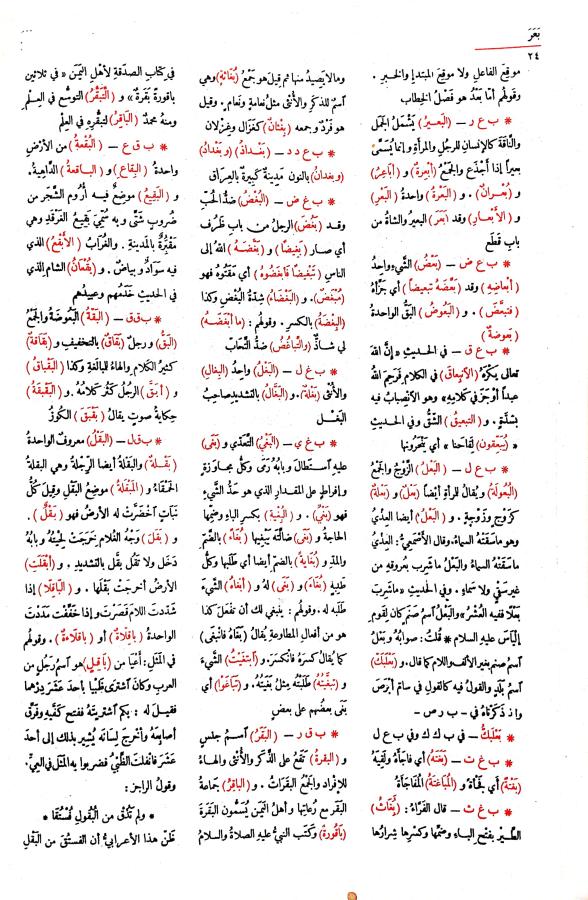 بَعَرَ
٢٤
موقِعَ الفاعلِ ولا موقِعَ المبتدإِ والخبرِ .
وقولُهم أمّا بَعْدُ هو فَصْلُ الخِطاب
* ب ع ر — (البَعيرُ) يَشْمَلُ الجمَلَ
والنَّاقةَ كالإنسانِ للرجُلِ والمرأةِ وإنما يُسَمَّى
بعيراً إذا أَجْذَعَ والجمْعُ (أبْعِرةٌ) و (أباعِرُ)
و (بُعْرانٌ) . و (البَعْرةُ) واحدةُ (البَعْرِ)
و (الأبْعارِ) وقد (بَعَرَ) البعيرُ والشاةُ من
بابِ قَطَع
* ب ع ض — (بَعْضُ) الشَّيءِ واحِدُ
(أبعاضِهِ) وقد (بَعَّضَهُ تبعيضاً) أي جَزَّأَهُ
(فتبعَّضَ) . و (البَعُوضُ) البَقُّ الواحدةُ
(بَعوضةٌ)
* ب ع ق — في الحديثِ «إنَّ اللهَ
تعالى يكرَهُ (الانْبِعاقَ) في الكلامِ فرَحِمَ اللهُ
عبداً أوْجَزَ في كلامِهِ» وهو الانْصِبابُ فيه
بشدّةٍ . و (التبعيقُ) الشّقُّ وفي الحديثِ
« (يُبَعِّقون) لِقاحَنا » أي يَنْحَرونها
* ب ع ل — (البَعْلُ) الزَّوجُ والجمْعُ
(البُعولَةُ) ويقالُ للمرأةِ أيضاً (بَعْلٌ) و (بَعْلةٌ)
كزَوجٍ وزَوجةٍ . و (البَعْلُ) أيضاً العِذْيُ
وهو ماسَقَتْه السماءُ. وقال الأَصْمَعيُّ: العِذْيُ
ماسَقَتْهُ السماءُ والبَعْلُ ماشرِب بعُروقِهِ من
غيرِ سَقْيٍ ولا سماءٍ. وفي الحديثِ «ماشَرِبَ
بَعْلاً ففيه العُشْرُ» والبَعْلُ اسمُ صَنمٍ كان لقومِ
إلْياسَ عليه السلام * قُلتُ: صوابُهُ وبَعْلُ
اسمُ صنمٍ بغيرِ ألفٍ ولامٍ كما قال. و (بَعْلَبَكُّ)
اسمُ بلدٍ والقولُ فيه كالقولِ في سامِ أَبْرَصَ
وا ذ ذكَرْناهُ في – ب ر ص –
* بَعْلَبَكّ — في ب ك ك وفي ب ع ل
* ب غ ت — (بَغَتَهُ) أي فاجأهُ ولقِيَهُ
(بَغْتةً) أي بَفْأَةً و (المُباغَتةُ) المُفاجأةُ
* ب غ ث — قال الفَرّاءُ: (بغاثُ)
الطَّيرِ بفتحِ الباءِ وضمِّها وكسرِها شِرارُها
ومالا يَصيدُ منها ثم قيل هو جَمْعُ (بُغاثةٍ) وهي
اسمٌ للذكَرِ والأنْثى مثلُ نعامةٍ ونعامٍ. وقيل
هو فَردٌ وجمعه (بِغْثانٌ) كغَزالٍ وغِزْلان
* ب غ د د — (بَغْدادُ) (وبَغداذُ)
(وبغدانُ) بالنون مَدينةٌ كبيرةٌ بالعِراق
* ب غ ض — (البُغْضُ) ضدُّ الحُبِّ
وقد (بَغُضَ) الرجلُ من بابِ ظَرُفَ
أي صار (بغيضاً) و (بَغَّضَهُ) اللهُ إلى
الناسِ (تبغيضاً فأبْغَضُوهُ) أي مَقَتُوهُ فهو
(مُبْغَضٌ). و (البَغْضاءُ) شِدّةُ البُغْضِ وكذا
(البِغْضَةُ) بالكسرِ. وقولهم: (ما أبغَضَهُ)
لي شاذٌّ (والتَّباغُضُ) ضدُّ التَّحابِّ
* ب غ ل — (البَغْلُ) واحدُ (البِغالِ)
والأنْثَى (بَغْلةٌ). و (البَغَّالُ) بالتشديدِ صاحِبُ
البَغْلِ
* ب غ ي — (البَغْيُ) التَّعدّي و (بَغَى)
عليه اسْتطالَ وبابُهُ رَمَى وكلُّ مجاوَزةٍ
وإفراطٍ على المقدارِ الذي هو حَدُّ الشَّيءِ
فهو (بَغْيٌ) . و (البِغْيةُ) بكسرِ الباءِ وضمِّها
الحاجةُ و (بَغَى) ضالَّتَهُ يَبْغيها (بُغاءً) بالضَّمِّ
والمدِّ و (بُغايةً) بالضمِّ أيضاً أي طَلَبها وكلُّ
طَلِبةٍ (بُغاءٌ) و (بَغَى) له و (أبغاهُ) الشَّيءَ
طَلَبَه له. وقولُهم : يَنبغي لك أن تفعَلَ كذا
هو من أفعالِ المطاوعةِ يُقالُ (بَغاهُ فانْبَغى)
كما يقالُ كَسَرَهُ فانْكسَرَ. و (ابتغَيْتُ) الشَّيءَ
و (تبغَّيْتُهُ) طَلَبْتُه مثلُ بَغَيْتُه. و (تباغَوْا) أي
بَغَى بعضُهم على بعضٍ
* ب ق ر — (البَقَرُ) اسمُ جنسٍ
و (البَقرةُ) تَقَعُ على الذَّكَرِ والأنثى والهاءُ
للإفرادِ والجمْعُ البَقَراتُ . و (الباقرُ) جَماعةُ
البقَرِ مع رُعاتِها وأهلُ اليَمَنِ يُسَمُّون البقَرةَ
(باقُورةً) وكَتَب النبيُّ عليه الصلاةُ والسلامُ
في كتابِ الصَّدقَةِ لأهلِ اليَمَنِ « في ثلاثين
باقورةً بقَرةٌ » و (التّبَقُّرُ) التوسُّعُ في العِلمِ
ومنه محمدٌ (الباقِرُ) لتبقُّرِهِ في العِلْمِ
* ب ق ع — (البُقْعةُ) من الأرضِ
واحدةُ (البِقاعِ) و (الباقعةُ) الدّاهِيةُ.
و (البَقيعُ) موضعٌ فيه أُرُومُ الشَّجَرِ من
ضُروبٍ شتَّى وبه سُمِّيَ بقيعُ الغَرقدِ وهي
مَقْبَرةٌ بالمدينةِ . والغُرابُ (الأبْقَعُ) الذي
فيه سَوادٌ وبياضٌ. و (بُقْعانُ) الشامِ الذي
في الحديثِ خَدَمُهم وعبيدُهم
* ب ق ق — (البَقَّةُ) البَعوضةُ والجمْعُ
(البَقُّ) ورجلٌ (بَقاقٌ) بالتخفيفِ و (بَقاقةٌ)
كثيرُ الكلامِ والهاءُ للمبالغةِ وكذا (البَقْباقُ)
و (أبَقَّ) الرجُلُ كَثُر كلامُهُ. و (البَقْبَقةُ)
حِكايةُ صوتٍ يقالُ (بَقْبَقَ) الكُوزُ
* ب ق ل — (البَقْلُ) معروفٌ الواحدةُ
(بَقْلةٌ) والبَقْلةُ أيضاً الرِّجْلةُ وهي البقلةُ
الحَمْقاءُ و (المَبْقَلةُ) موضعُ البَقْلِ وقيل كلُّ
نباتٍ اخْضَرَّتْ له الأرضُ فهو (بَقْلٌ) .
و (بَقَلَ) وَجْهُ الغُلامِ خَرَجتْ لِحْيَتُهُ وبابُهُ
دَخَل ولا تَقُل بقَّل بالتشديدِ . و (أبْقلَتِ)
الأرضُ أخرجتْ بقْلَها . و (الباقِلَّا) إذا
شدّدتَ اللامَ قَصَرْتَ وإذا خفَّفْتَ مدَدْتَ
الواحدةُ (باقِلّاةٌ) أو (باقلاءةٌ) . وقولُهم
في المثَلِ: أعْيا من (باقِلٍ) هو اسمُ رَجلٍ من
العربِ وكان اشترى ظَبْياً بأحَدَ عَشَرَ دِرْهما
فقيل له : بِكَم اشتريْتَهُ ففتح كفَّيهِ وفرَّقَ
أصابِعَهُ وأخرج لِسانَه يُشيرُ بذلك إلى أحدَ
عَشَرَ فانفلتَ الظَّبيُ فضربوا به المثَلَ في العِيِّ.
وقولُ الراجِزِ:
* ولم تَذُقْ من البُقولِ فُسْتُقا *
ظَنَّ هذا الأعرابيُّ أن الفستقَ من البَقْلِ